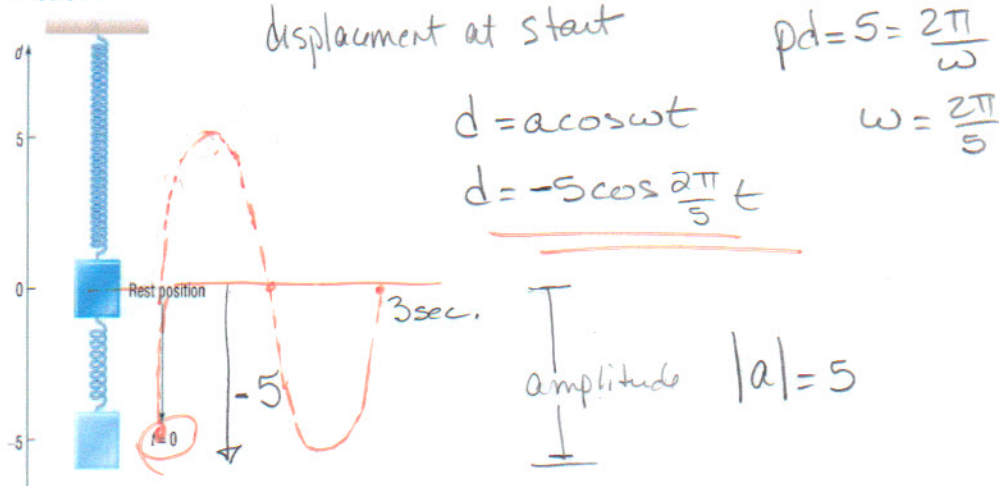 displacment at start
pd = 5 = 2π/ω
d
5
d = a cos ωt
ω = 2π/5
d = -5 cos 2π/5 t
0
Rest position
3 sec.
- 5
amplitude |a| = 5
-5
t = 0